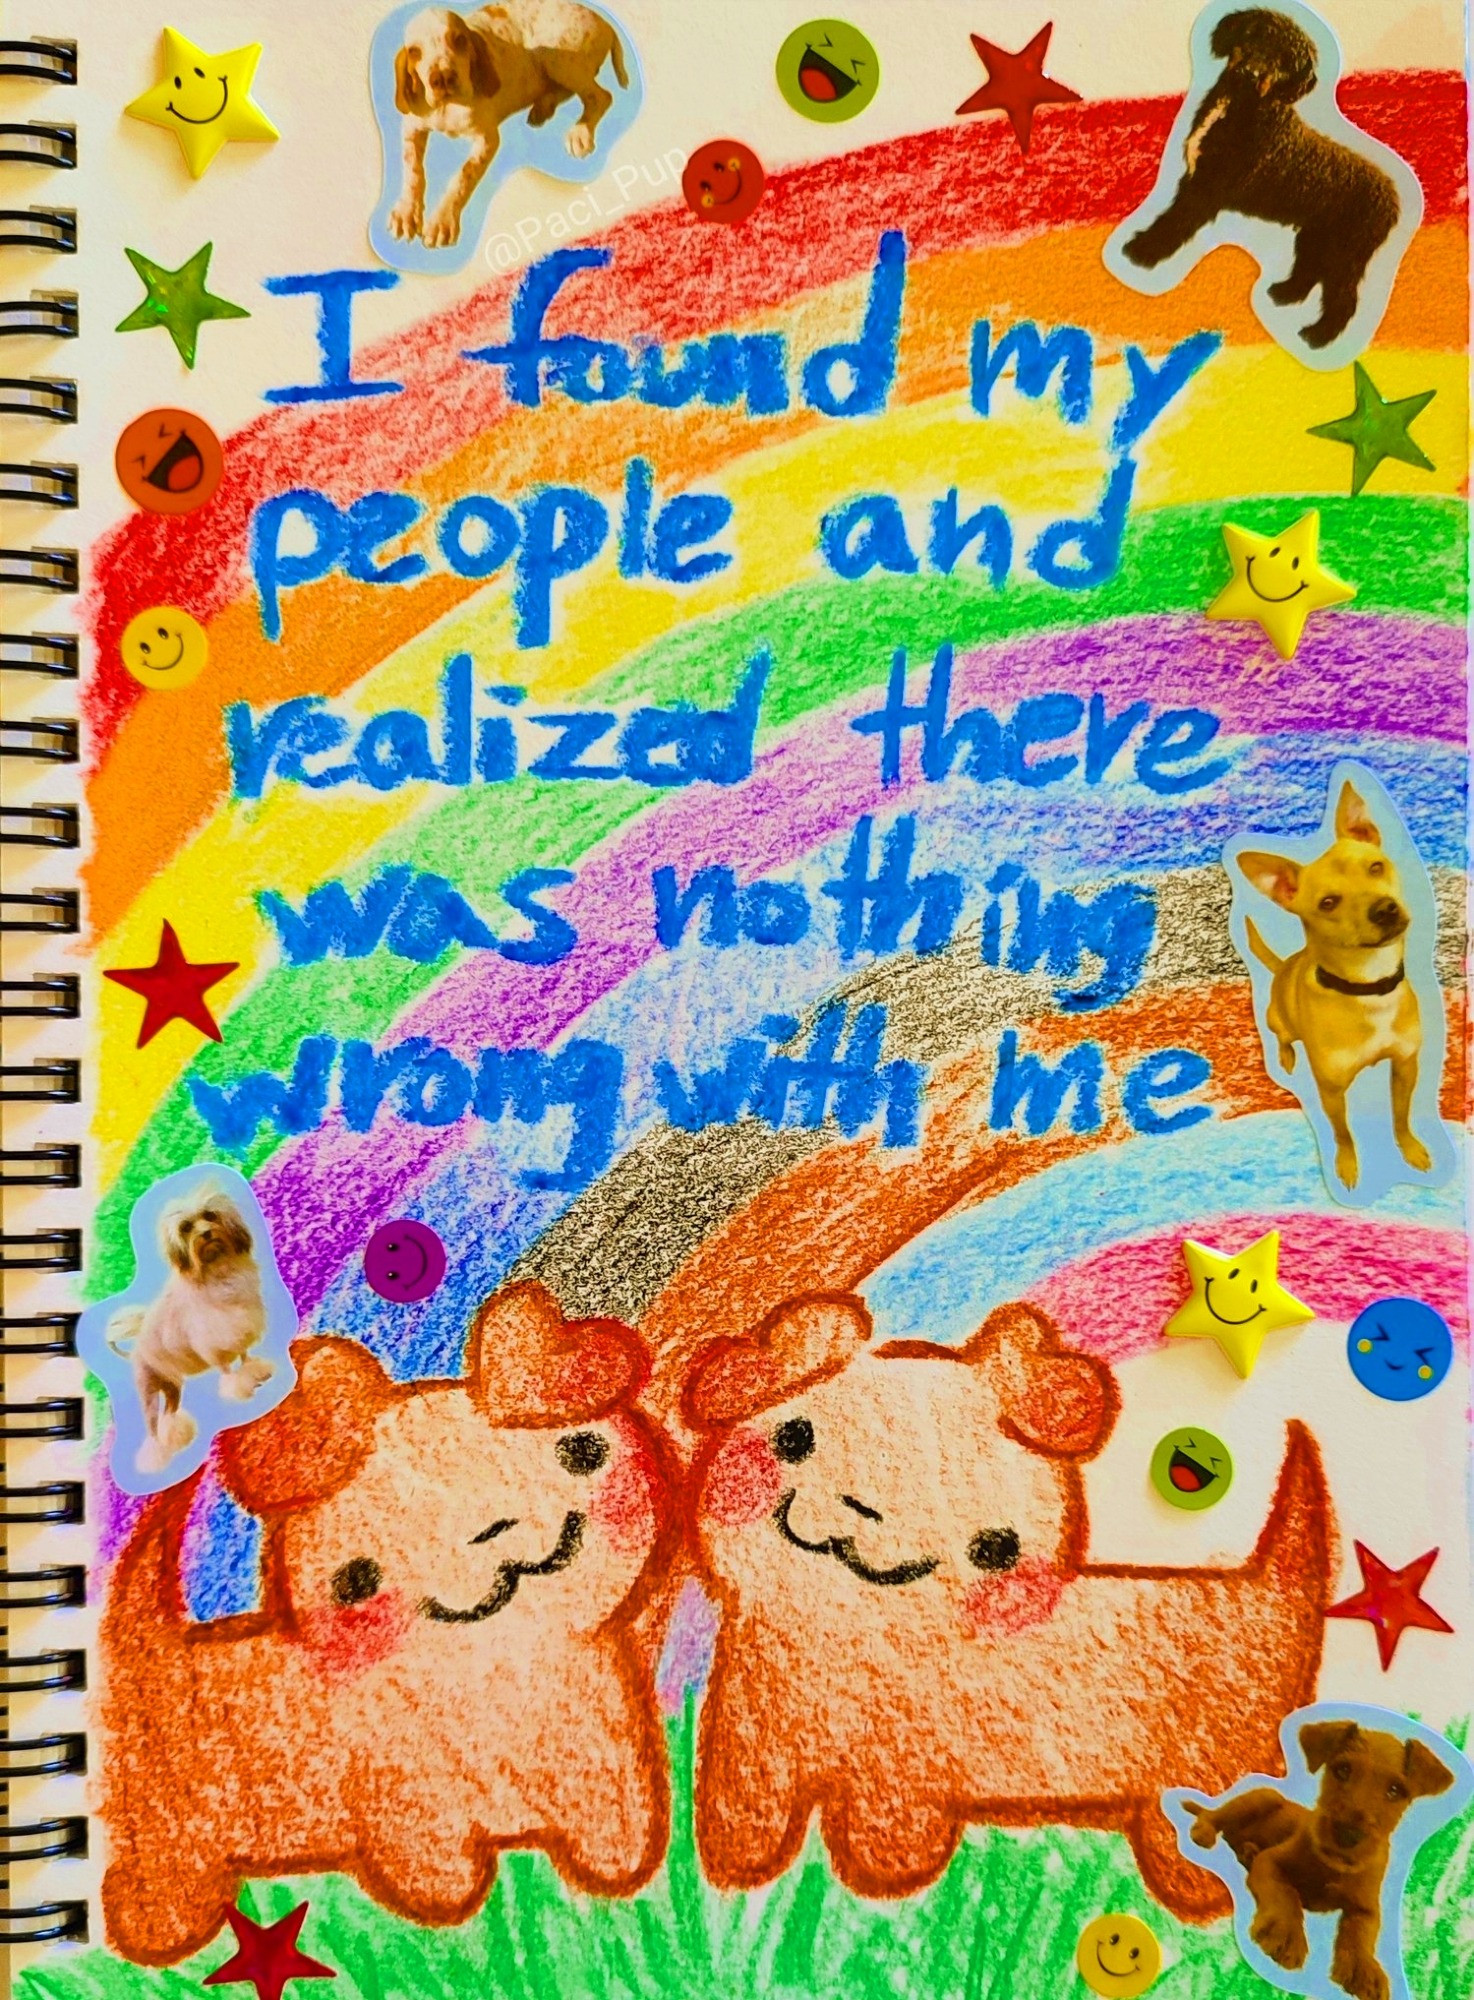 @Paci_Pup
I found my
people and
realized there
was nothing
wrong with me